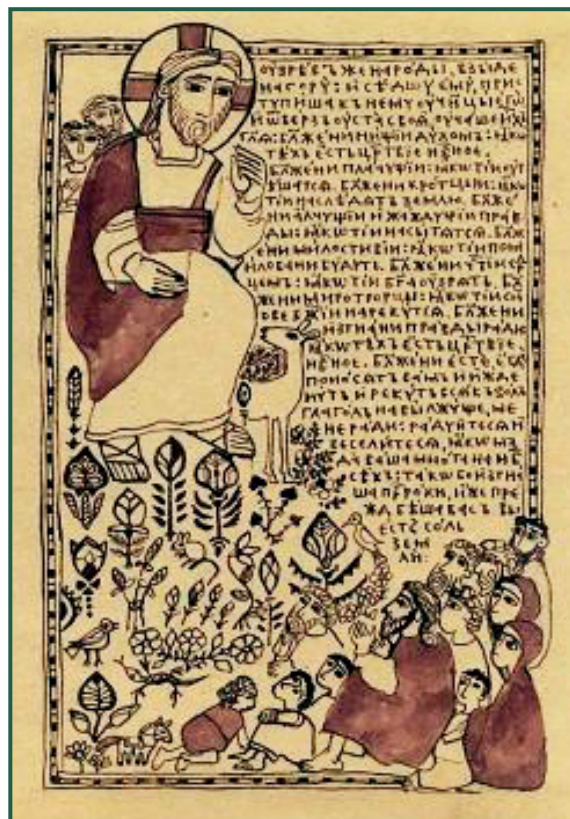 ОУЗРѢВЪ ЖЕ НАРОДЫ, ВЗЫДЕ
НА ГОРУ: И СѢДШУ ЕМУ, ПРИС
ТУПИША КЪ НЕМУ ОУЧН҃ЦЫ ЕГѠ
И ѾВЕРЗЪ ОУСТА СВОѦ, ОУЧАШЕ ИХЪ
ГЛ҃Ѧ: БЛ҃ЖЕНИ НИЩІИ ДУХОМЪ: ꙖКѠ
ТѢХЪ ЕСТЬ ЦР҃ТВІЕ НБ҃НОЕ.
БЛ҃ЖЕНИ ПЛАЧУЩІИ: ꙖКѠ ТІИ ОУТ
ѢШАТСѦ. БЛ҃ЖЕНИ КРОТЦЫИ: ꙖКѠ
ТІИ НАСЛѢДѦТЪ ЗЕМЛЮ. БЛ҃ЖЕ
НИ АЛЧУЩІИ И ЖАЖДУЩІИ ПРАВ
ДЫ: ꙖКѠ ТІИ НАСЫТѦТСѦ. БЛ҃Ж
ЕНИ МИЛОСТИВІИ: ꙖКѠ ТІИ ПОМИ
ЛОВАНИ БУДУТЪ. БЛ҃ЖЕНИ Ч҃ТІИ СЕР
ЦЕМЪ: ꙖКѠ ТІИ БГ҃А ОУЗРѦТЪ. БЛ҃
ЖЕНИ МИРОТВОРЦЫ: ꙖКѠ ТІИ СЫН
ОВЕ БЖ҃ІИ НАРЕКУТСѦ. БЛ҃ЖЕНИ
ИЗГНАНИ ПРАВДЫ РАДИ
ꙖКѠ ТѢХЪ ЕСТЬ ЦР҃ТВІЕ
НБ҃НОЕ. БЛ҃ЖЕНИ ЕСТЕ, ЕГДА
ПОНОСѦТЪ ВАМЪ И ИЖДЕ
НУТЪ И РЕКУТЪ ВСѦКЪ ЗОЛЪ
ГЛАГОЛЪ НА ВЫ ЛЖУЩЕ, МЕ
НЕ РАДИ: РАДУЙТЕСѦ И
ВЕСЕЛИТЕСѦ, ꙖКѠ МЗ
ДА ВАША МНОГА НА НБ҃
СѢХЪ: ТАКѠ БО ИЗГНА
ША ПР҃ОКИ, ИЖЕ ПРЕ
ЖДЕ БѢША ВАСЪ ВЫ
ЕСТЕ СОЛЬ
ЗЕМ
ЛИ: